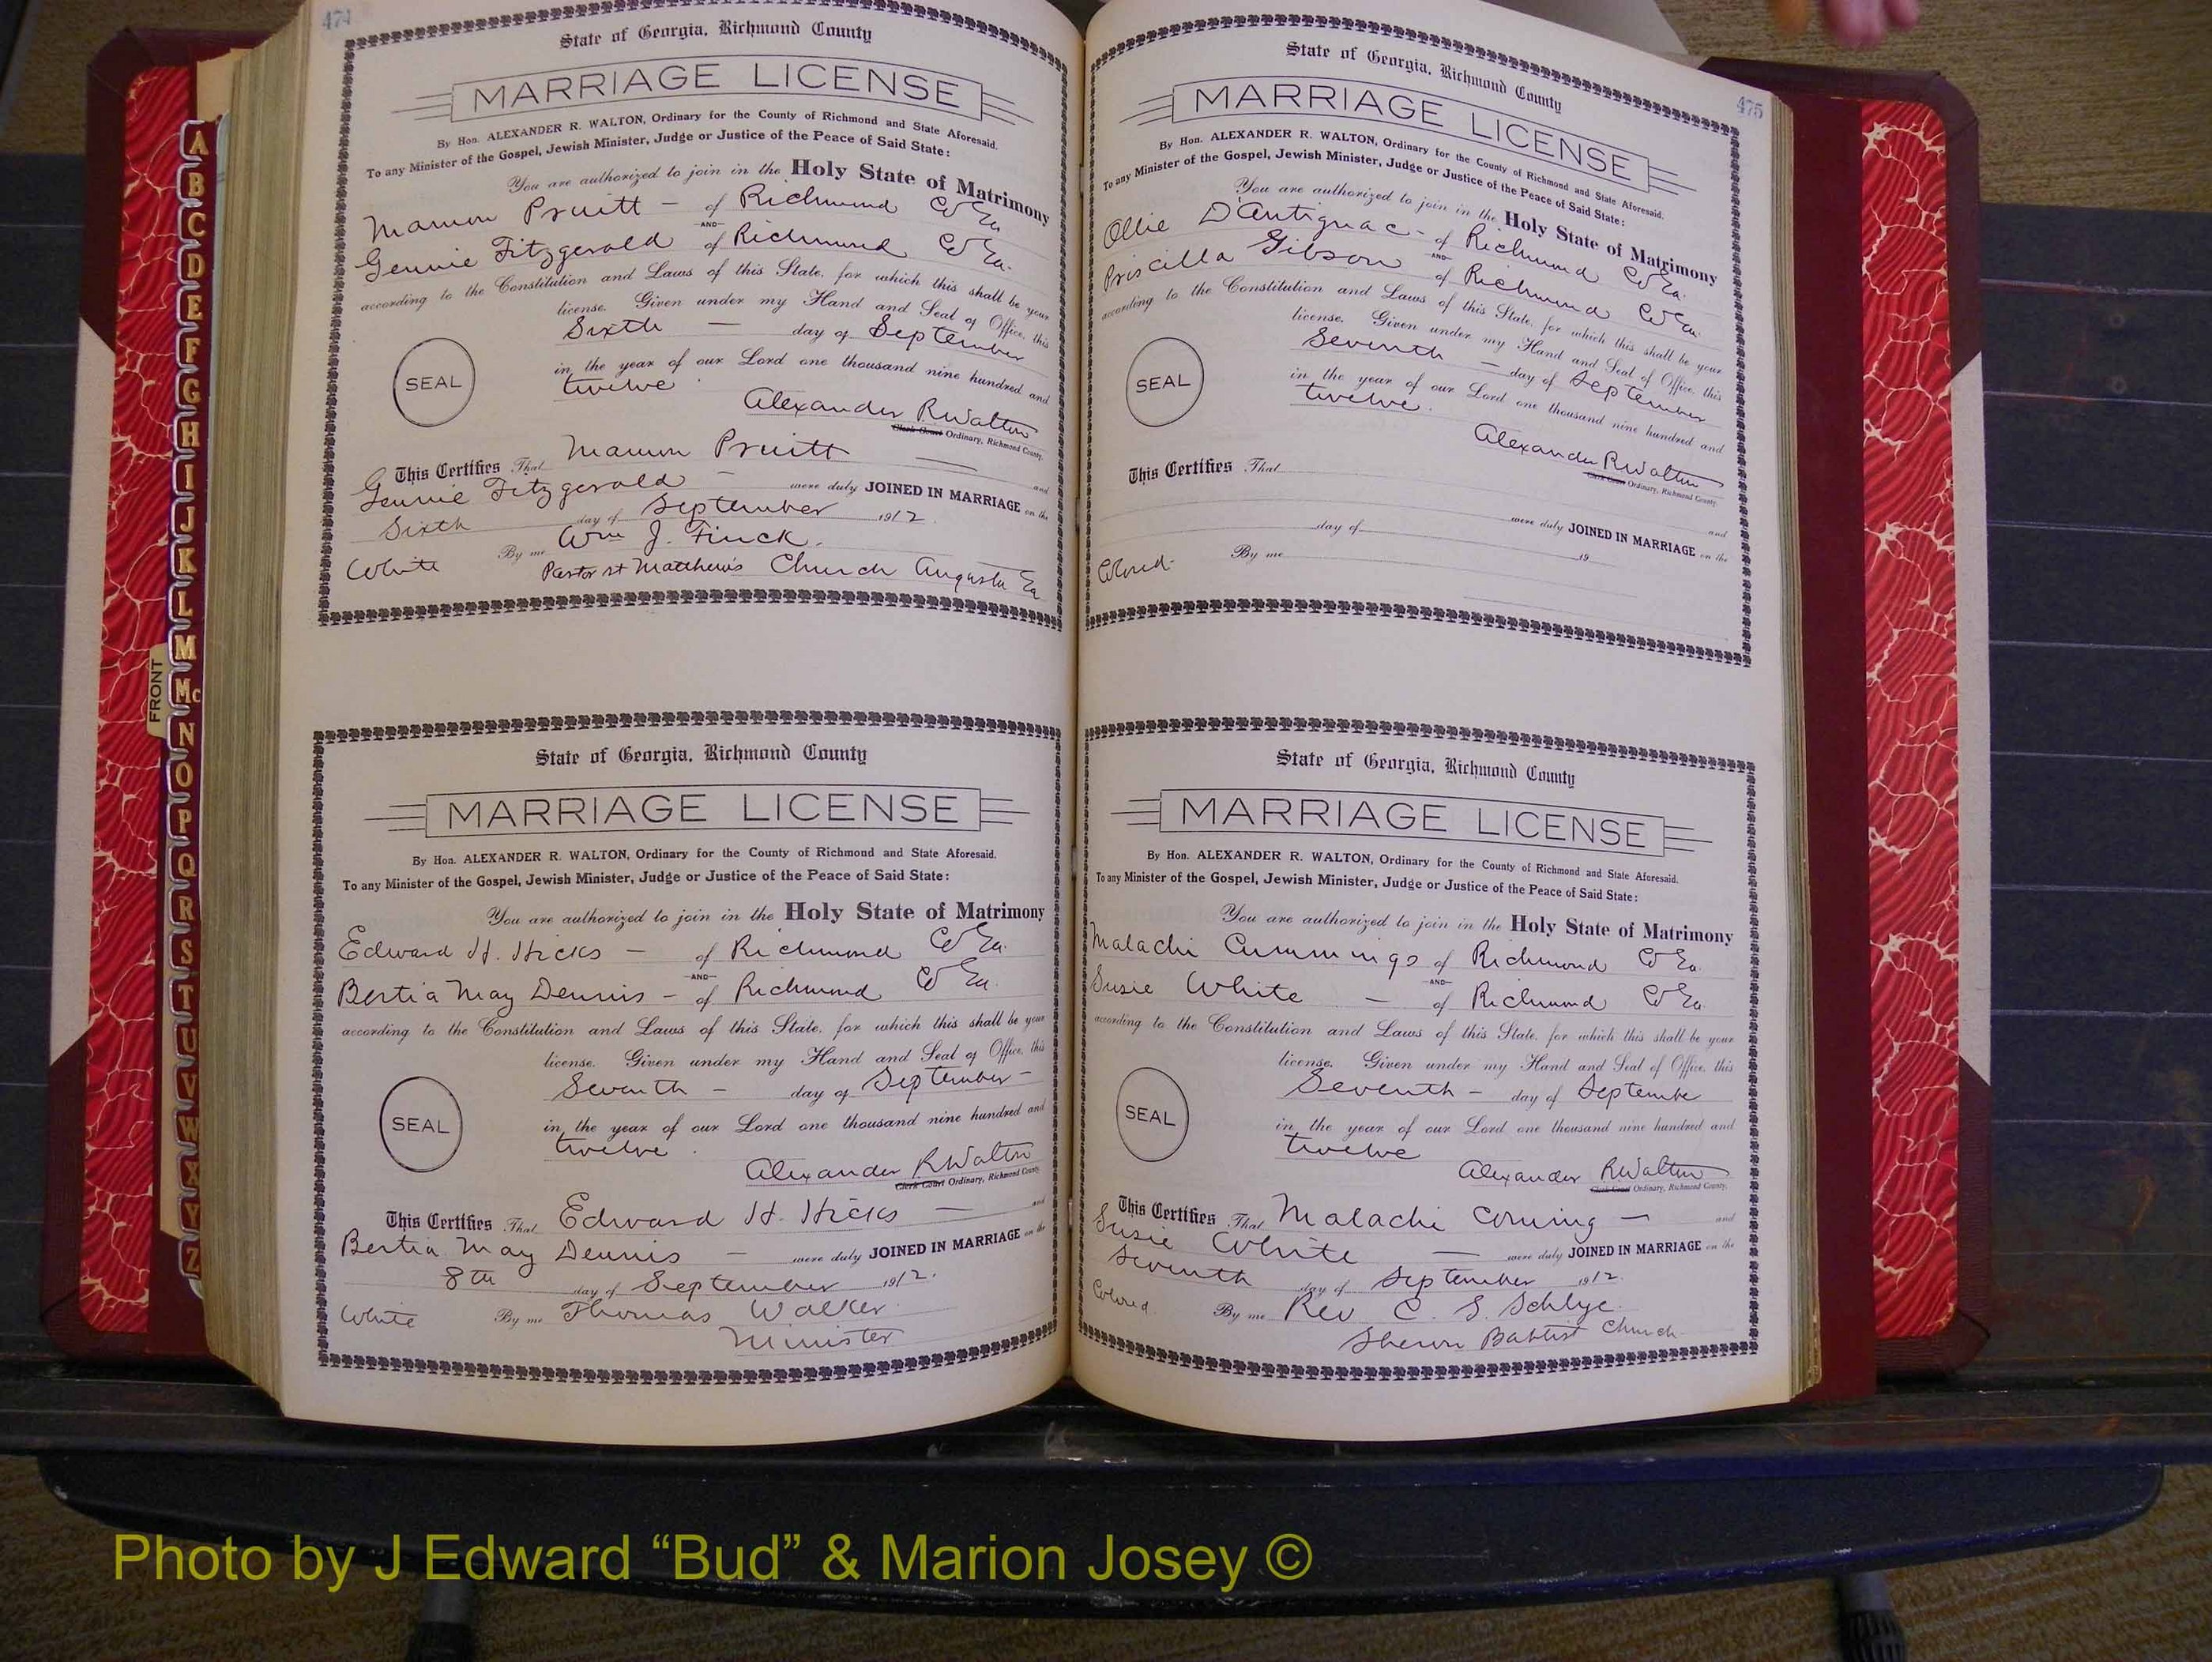 474
State of Georgia, Richmond County
MARRIAGE LICENSE
By Hon. ALEXANDER R. WALTON, Ordinary for the County of Richmond and State Aforesaid.
To any Minister of the Gospel, Jewish Minister, Judge or Justice of the Peace of Said State:
You are authorized to join in the Holy State of Matrimony
Marion Pruitt - of Richmond Co Ga.
AND
Gennie Fitzgerald of Richmond Co Ga.
according to the Constitution and Laws of this State, for which this shall be your
license. Given under my Hand and Seal of Office, this
Sixth — day of September
in the year of our Lord one thousand nine hundred and
twelve.
SEAL
Alexander R Walton
Clerk Court Ordinary, Richmond County.
This Certifies That Marion Pruitt — and
Gennie Fitzgerald - were duly JOINED IN MARRIAGE on the
Sixth day of September 1912.
White By me Wm J. Finck.
Pastor St Matthew's Church Augusta Ga
State of Georgia, Richmond County
MARRIAGE LICENSE
By Hon. ALEXANDER R. WALTON, Ordinary for the County of Richmond and State Aforesaid.
To any Minister of the Gospel, Jewish Minister, Judge or Justice of the Peace of Said State:
You are authorized to join in the Holy State of Matrimony
Edward H. Hicks - of Richmond Co Ga.
AND
Bertia May Dennis - of Richmond Co Ga.
according to the Constitution and Laws of this State, for which this shall be your
license. Given under my Hand and Seal of Office, this
Seventh - day of September -
in the year of our Lord one thousand nine hundred and
twelve.
SEAL
Alexander R Walton
Clerk Court Ordinary, Richmond County.
This Certifies That Edward H. Hicks — and
Bertia May Dennis - were duly JOINED IN MARRIAGE on the
8th day of September 1912.
White By me Thomas Walker.
Minister
475
State of Georgia, Richmond County
MARRIAGE LICENSE
By Hon. ALEXANDER R. WALTON, Ordinary for the County of Richmond and State Aforesaid.
To any Minister of the Gospel, Jewish Minister, Judge or Justice of the Peace of Said State:
You are authorized to join in the Holy State of Matrimony
Ollie D'Antignac - of Richmond Co Ga.
AND
Priscilla Gibson of Richmond Co Ga.
according to the Constitution and Laws of this State, for which this shall be your
license. Given under my Hand and Seal of Office, this
Seventh - day of September
in the year of our Lord one thousand nine hundred and
twelve.
SEAL
Alexander R Walton
Clerk Court Ordinary, Richmond County.
This Certifies That
and
were duly JOINED IN MARRIAGE on the
day of 19
Colored. By me
State of Georgia, Richmond County
MARRIAGE LICENSE
By Hon. ALEXANDER R. WALTON, Ordinary for the County of Richmond and State Aforesaid.
To any Minister of the Gospel, Jewish Minister, Judge or Justice of the Peace of Said State:
You are authorized to join in the Holy State of Matrimony
Malachi Cummings of Richmond Co Ga.
AND
Susie White - of Richmond Co Ga.
according to the Constitution and Laws of this State, for which this shall be your
license. Given under my Hand and Seal of Office, this
Seventh - day of Septembe
in the year of our Lord one thousand nine hundred and
twelve
SEAL
Alexander R Walton
Clerk Court Ordinary, Richmond County.
This Certifies That Malachi Coming - and
Susie White — were duly JOINED IN MARRIAGE on the
Seventh day of September 1912.
Colored By me Rev C. S.
Baptist Church
A
B
C
D
E
F
G
H
I
J
K
L
M
Mc
N
O
P
Q
R
S
T
U
V
W
X
Y
Z
FRONT
Photo by J Edward “Bud” & Marion Josey ©